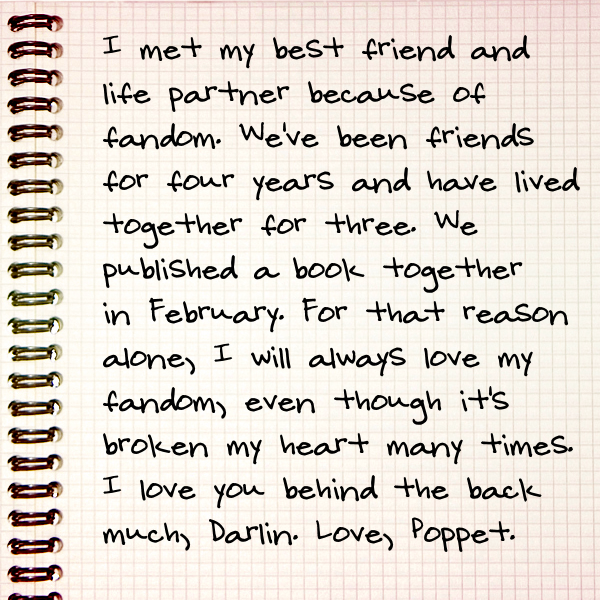 I met my best friend and
life partner because of
fandom. We've been friends
for four years and have lived
together for three. We
published a book together
in February. For that reason
alone, I will always love my
fandom, even though it's
broken my heart many times.
I love you behind the back
much, Darlin. Love, Poppet.